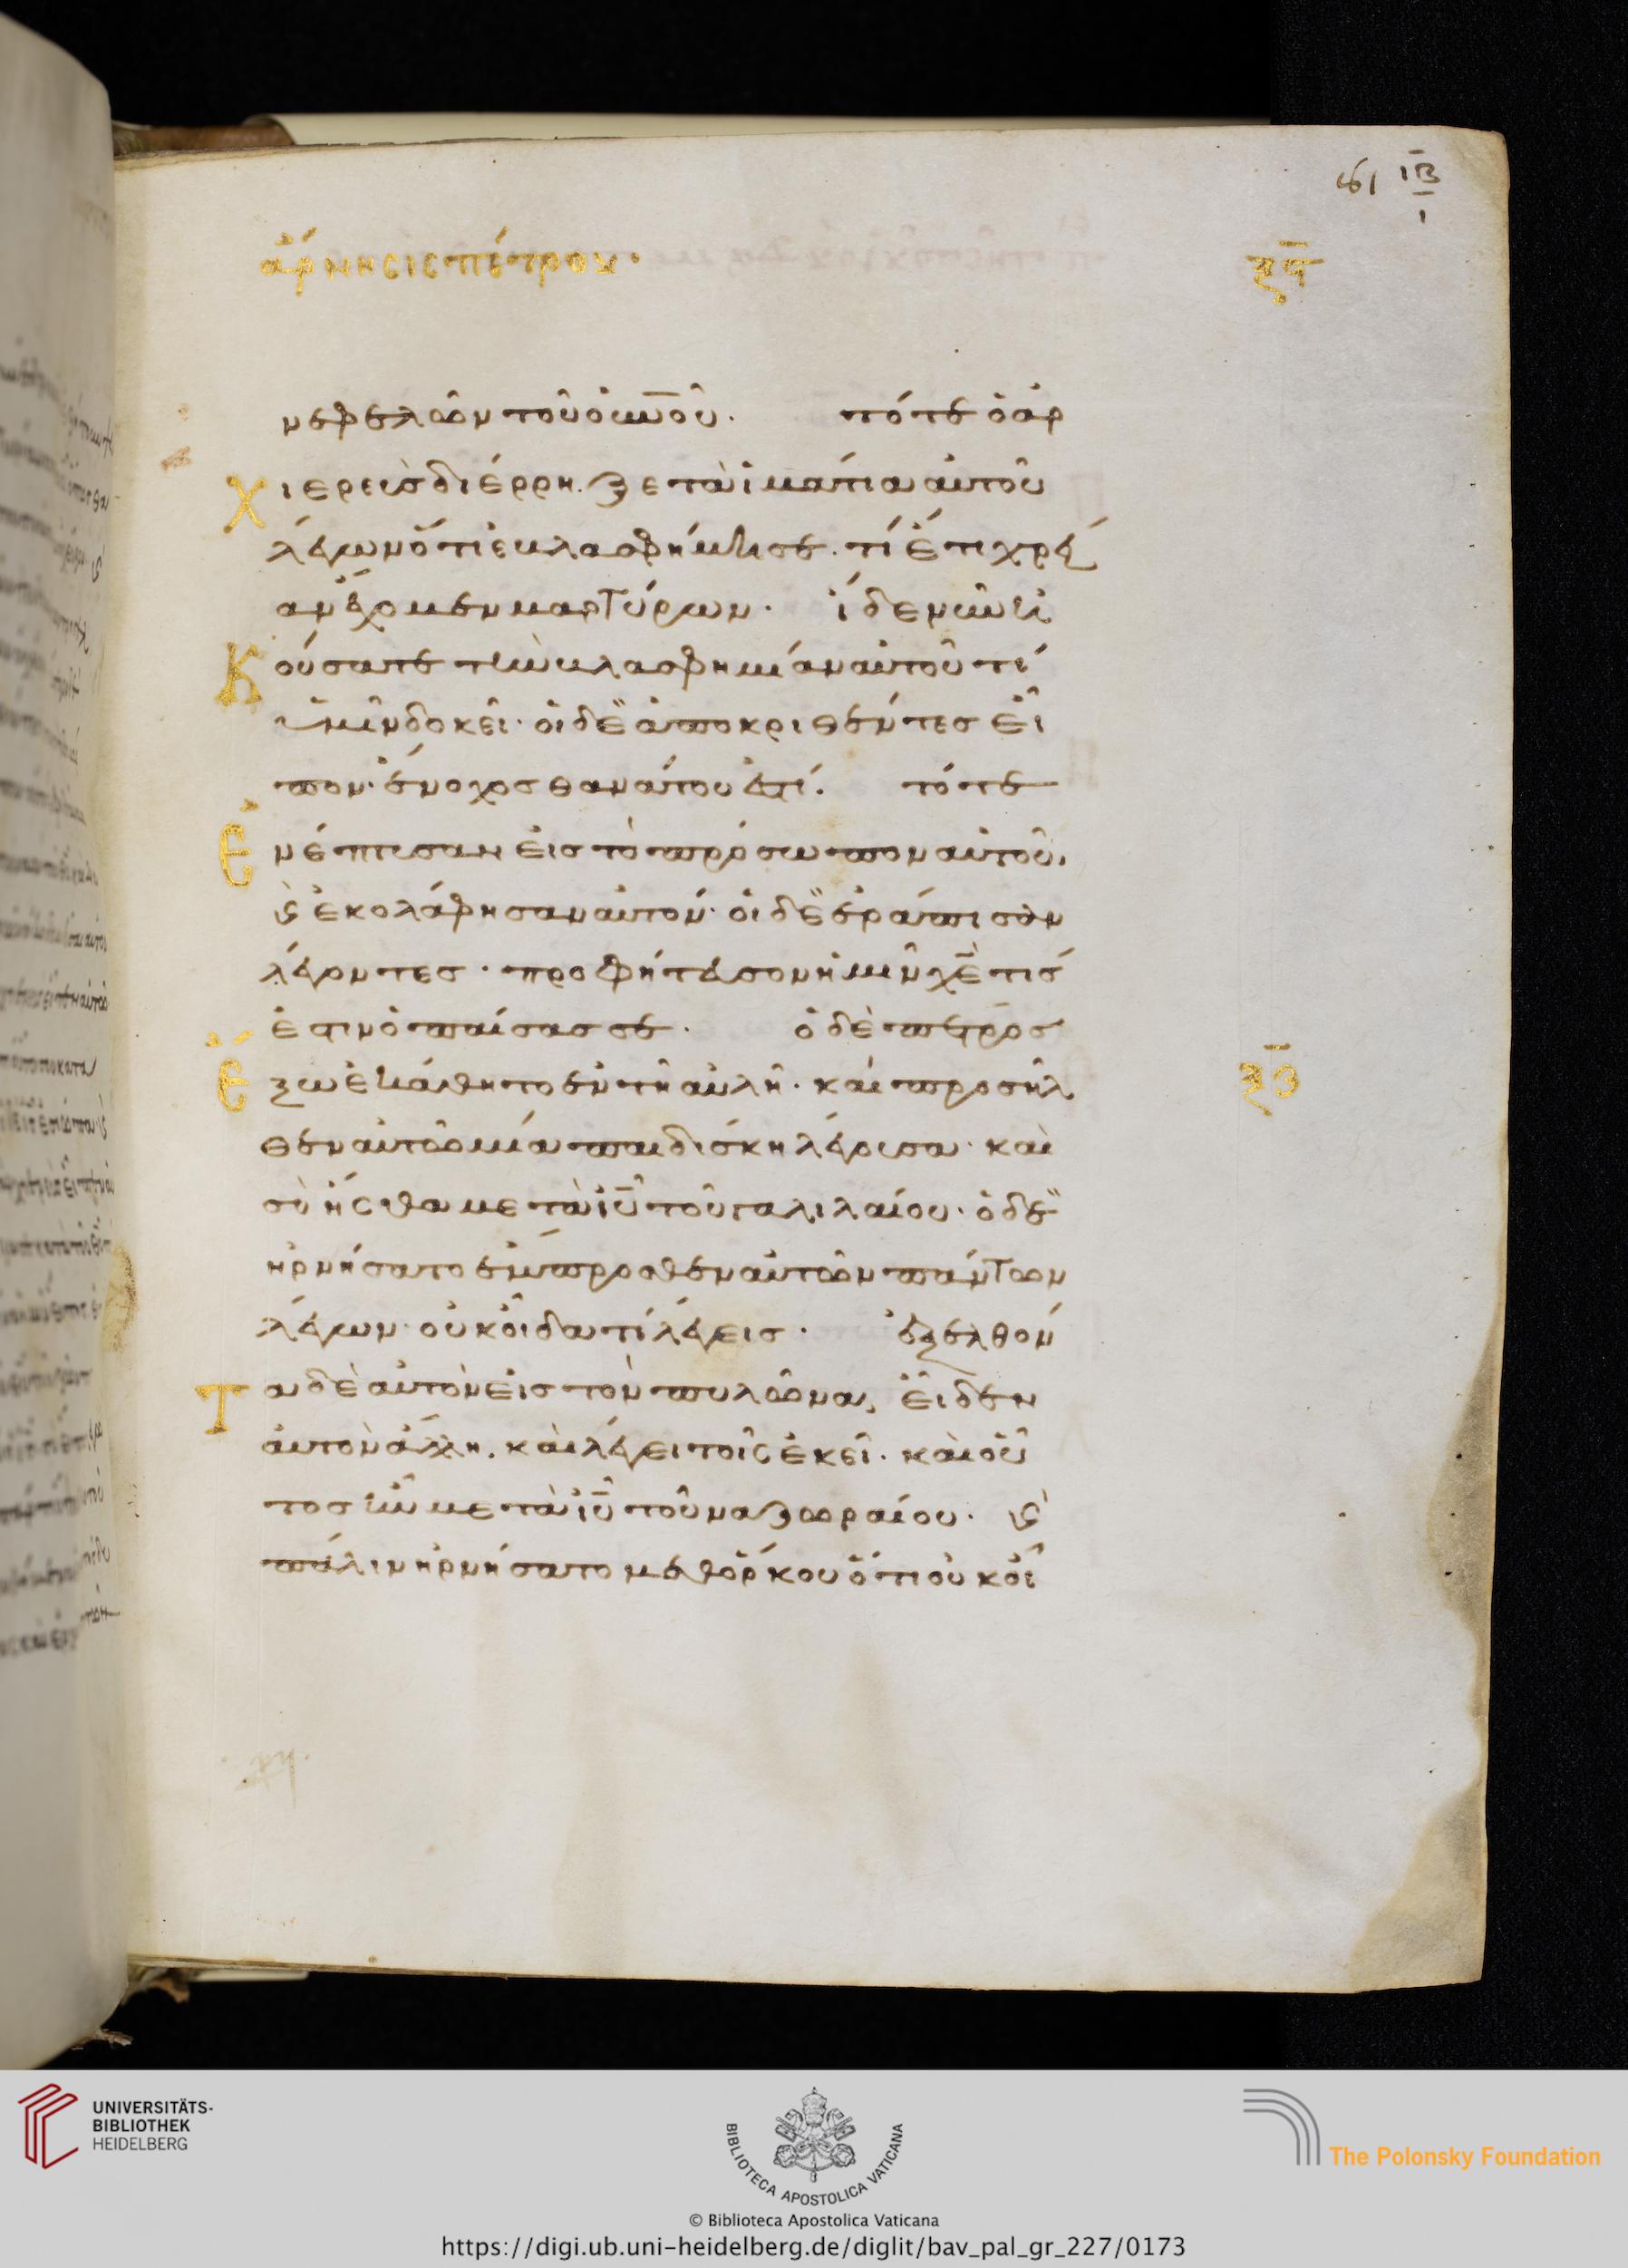 61 ιβ
ι
ἄρνησις πέτρου.
ξϛ
νεφελῶν τοῦ οὐνοῦ. τότε ὁ ἀρ
χιερεὺς διέρρηξε τὰ ἱμάτια αὐτοῦ
λέγων ὅτι ἐβλασφήμησε. τί ἔτι χρεί
αν ἔχομεν μαρτύρων. ἴδε νῦν ἠ
κούσατε τὴν βλασφημίαν αὐτοῦ τί
ὑμῖν δοκεῖ. οἱ δὲ ἀποκριθέντες εἶ
πον. ἔνοχος θανάτου ἐστί. τότε
ἐνέπτυσαν εἰς τὸ πρόσωπον αὐτοῦ,
ϗ ἐκολάφησαν αὐτόν. οἱ δὲ ἐράπισαν
λέγοντες. προφήτευσον ἡμῖν χὲ τίς
ἐστιν ὁ παίσας σε. ὁ δὲ πέτρος
ἔξω ἐκάθητο ἐν τῇ αὐλῇ. καὶ προσῆλ
ξζ
θεν αὐτῶ μία παιδίσκη λέγουσα. καὶ
σὺ ἦσθα μετὰ ἰῦ τοῦ γαλιλαίου. ὁ δὲ
ἠρνήσατο ἔμπροσθεν αὐτῶν πάντων
λέγων. οὐκ οἶδα τί λέγεις. ἐξελθόν
τα δὲ αὐτὸν εἰς τὸν πυλῶνα, εἶδεν
αὐτὸν ἄλλη. καὶ λέγει τοῖς ἐκεῖ. καὶ οὗ
τος ἦν μετὰ ἰῦ τοῦ ναζωραίου. ϗ
πάλιν ἠρνήσατο μεθ ὅρκου ὅτι οὐκ οἶ
UNIVERSITÄTS-
BIBLIOTHEK
HEIDELBERG
BIBLIOTECA APOSTOLICA VATICANA
The Polonsky Foundation
© Biblioteca Apostolica Vaticana
https://digi.ub.uni-heidelberg.de/diglit/bav_pal_gr_227/0173